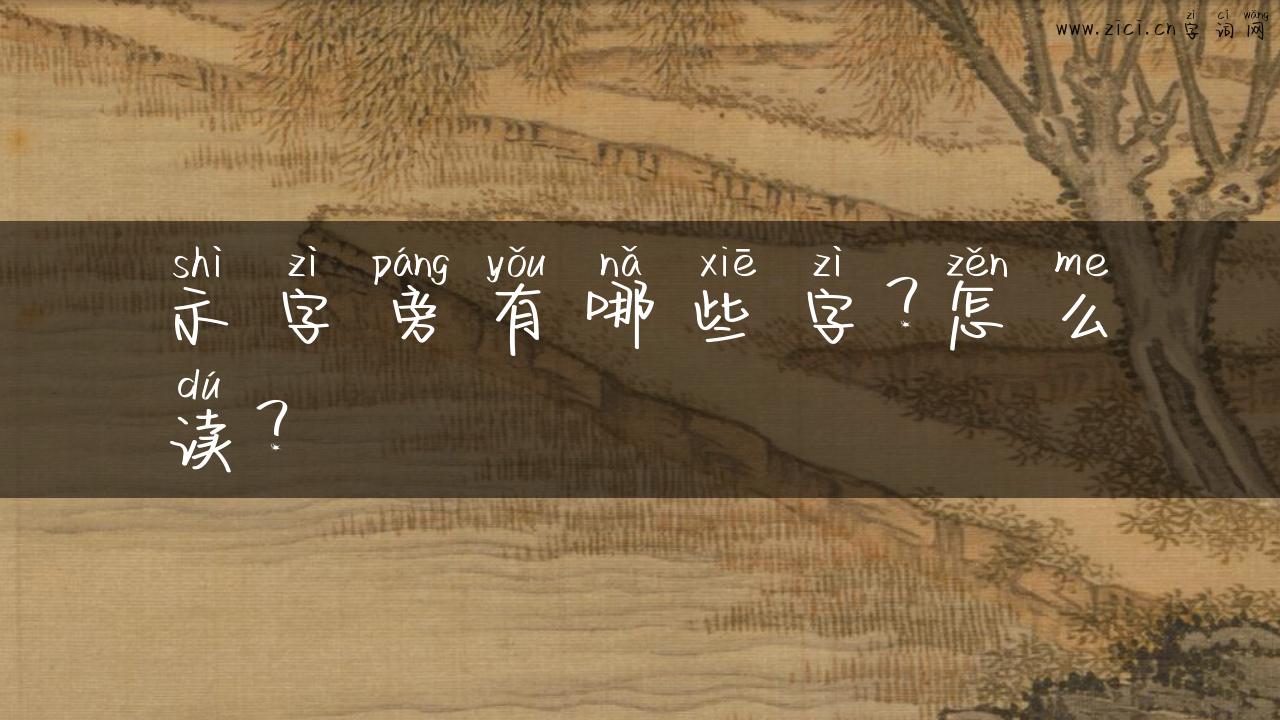 zì cí wǎng
www.zici.cn字词网
shì zì páng yǒu nǎ xiē zì zěn me
示字旁有哪些字?怎么
dú
读?